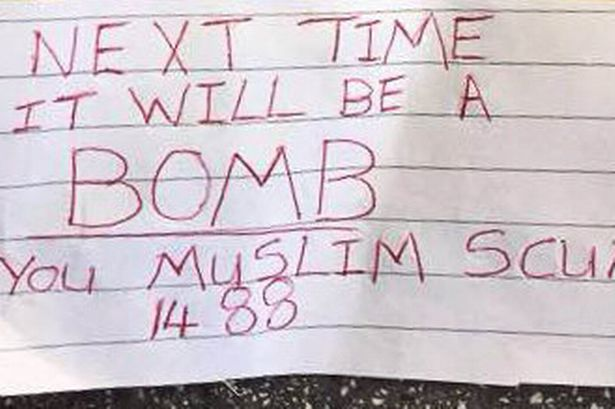 NEXT TIME
IT WILL BE A
BOMB
YOU MUSLIM
1488